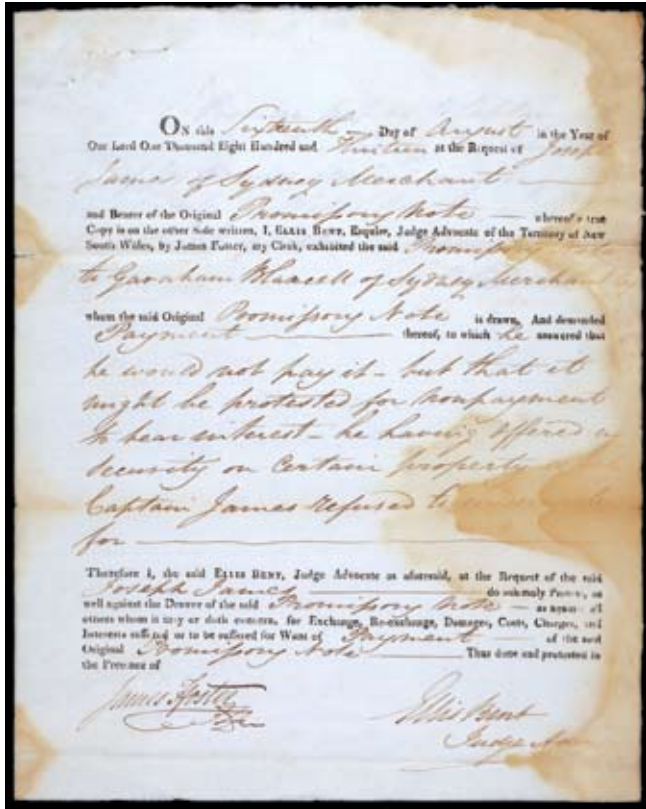 ON this Sixteenth Day of August in the Year of
Our Lord One Thousand Eight Hundred and Thirteen at the Request of Joseph
James of Sydney Merchant
and Bearer of the Original Promissory Note whereof a true
Copy is on the other Side written, I, ELLIS BENT, Esquire, Judge Advocate of the Territory of New
South Wales, by James Foster, my Clerk, exhibited the said Promissory
to Garnham Blaxcell of Sydney Merchant
whom the said Original Promissory Note is drawn, And demanded
Payment thereof, to which he answered that
he would not pay it - but that it
might be protested for nonpayment
to bear interest - he having offered
security on certain property
Captain James refused to
for
Therefore I, the said ELLIS BENT, Judge Advocate as aforesaid, at the Request of the said
Joseph James do solemnly Protest, as
well against the Drawer of the said Promissory Note as against all
others whom it may or doth concern, for Exchange, Re-exchange, Damages, Costs, Charges, and
Interests suffered or to be suffered for Want of Payment of the said
Original Promissory Note Thus done and protested in
the Presence of
James Foster
Ellis Bent
Judge